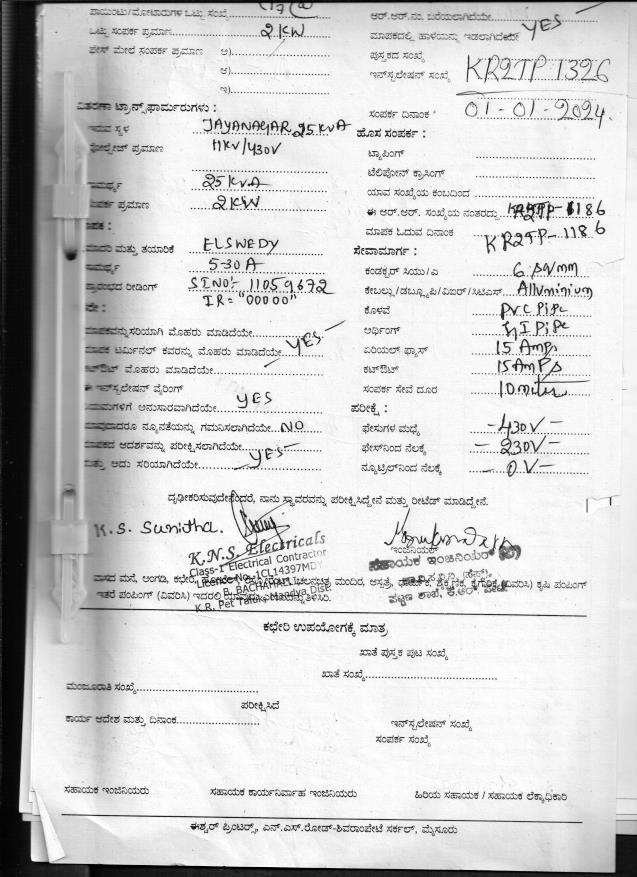 ಪಾಯಿಂಟು/ಮೋಟಾರುಗಳ ಒಟ್ಟು ಸಂಖ್ಯೆ
ಒಟ್ಟು ಸಂಪರ್ಕ ಪ್ರಮಾಣ 2 KW
ಫೇಸ್ ಮೇಲೆ ಸಂಪರ್ಕ ಪ್ರಮಾಣ ಅ)
ಆ)
ಇ)
ವಿತರಣಾ ಟ್ರಾನ್ಸ್‌ಫಾರ್ಮರುಗಳು :
ಇರುವ ಸ್ಥಳ JAYANAGAR 25 KVA
ವೋಲ್ಟೇಜ್ ಪ್ರಮಾಣ 11KV/430V
ಸಾಮರ್ಥ್ಯ 25 KVA
ಸಂಪರ್ಕ ಪ್ರಮಾಣ 2 KW
ಮಾದರಿ ಮತ್ತು ತಯಾರಿಕೆ ELSWEDY
ಸಾಮರ್ಥ್ಯ 5-30 A
ಪ್ರಾರಂಭದ ರೀಡಿಂಗ್ SI NO:- 11059672
IR = "00000"
ಮಾಪಕವನ್ನು ಸರಿಯಾಗಿ ಮೊಹರು ಮಾಡಿದೆಯೇ
ಮಾಪಕ ಟರ್ಮಿನಲ್ ಕವರನ್ನು ಮೊಹರು ಮಾಡಿದೆಯೇ YES
ಕಟ್‌ಔಟ್ ಮೊಹರು ಮಾಡಿದೆಯೇ
ಈ ಇನ್‌ಸ್ಟಲೇಷನ್ ವೈರಿಂಗ್
ನಿಯಮಗಳಿಗೆ ಅನುಸಾರವಾಗಿದೆಯೇ YES
ಯಾವುದಾದರೂ ನ್ಯೂನತೆಯನ್ನು ಗಮನಿಸಲಾಗಿದೆಯೇ NO
ಮಾಪಕದ ಆದರ್ಶವನ್ನು ಪರೀಕ್ಷಿಸಲಾಗಿದೆಯೇ YES
ಮತ್ತು ಅದು ಸರಿಯಾಗಿದೆಯೇ
ಆರ್.ಆರ್.ನಂ. ಬರೆಯಲಾಗಿದೆಯೇ YES
ಮಾಪಕದಲ್ಲಿ ಹಾಳೆಯನ್ನು ಇಡಲಾಗಿದೆಯೇ
ಪುಸ್ತಕದ ಸಂಖ್ಯೆ
ಇನ್‌ಸ್ಟಲೇಷನ್ ಸಂಖ್ಯೆ KR2TP 1326
ಸಂಪರ್ಕ ದಿನಾಂಕ 01-01-2024
ಹೊಸ ಸಂಪರ್ಕ :
ಟ್ಯಾಪಿಂಗ್
ಟೆಲಿಫೋನ್ ಕ್ರಾಸಿಂಗ್
ಯಾವ ಸಂಖ್ಯೆಯ ಕಂಬದಿಂದ
ಈ ಆರ್.ಆರ್. ಸಂಖ್ಯೆಯ ನಂತರದ್ದು
ಮಾಪಕ ಓದುವ ದಿನಾಂಕ KR2TP-1186
ಸೇವಾಮಾರ್ಗ :
ಕಂಡಕ್ಟರ್ ಸಿಯು/ಎ 6 sqmm
ಕೇಬಲ್ಲು/ಡಬ್ಲ್ಯೂಪಿ/ವಿಐಆರ್/ಸಿಟಿಎಸ್ Alluminium
ಕೊಳವೆ PVC Pipe
ಅರ್ಥಿಂಗ್ GI Pipe
ಏರಿಯಲ್ ಫ್ಯೂಸ್ 15 Amps
ಕಟ್‌ಔಟ್ 15 Amps
ಸಂಪರ್ಕ ಸೇವೆ ದೂರ 10 miters
ಪರೀಕ್ಷೆ :
ಫೇಸುಗಳ ಮಧ್ಯೆ - 430V -
ಫೇಸ್‌ನಿಂದ ನೆಲಕ್ಕೆ - 230V -
ನ್ಯೂಟ್ರಲ್‌ನಿಂದ ನೆಲಕ್ಕೆ - 0V -
ದೃಢೀಕರಿಸುವುದೇನೆಂದರೆ, ನಾನು ಸ್ಥಾವರವನ್ನು ಪರೀಕ್ಷಿಸಿದ್ದೇನೆ ಮತ್ತು ರೀಟೆಡ್ ಮಾಡಿದ್ದೇನೆ.
K.S. Sunitha.
K.N.S. Electricals
Class-1 Electrical Contractor
Licence No. 1CL14397MDY
B. BACHAHALLI
K.R. Pet Taluk, Mandya Dist.
ಇಂಜಿನಿಯರ್
ಸಹಾಯಕ ಇಂಜಿನಿಯರ್ (ವಿ)
ಇತರೆ ಪಂಪಿಂಗ್ (ವಿವರಿಸಿ) ಇದರಲ್ಲಿ ಯಾವುದು ಎಂಬುದನ್ನು ತಿಳಿಸಿರಿ.
ಕಛೇರಿ ಉಪಯೋಗಕ್ಕೆ ಮಾತ್ರ
ಖಾತೆ ಪುಸ್ತಕ ಪುಟ ಸಂಖ್ಯೆ
ಖಾತೆ ಸಂಖ್ಯೆ
ಮಂಜೂರಾತಿ ಸಂಖ್ಯೆ
ಪರೀಕ್ಷಿಸಿದೆ
ಕಾರ್ಯ ಆದೇಶ ಮತ್ತು ದಿನಾಂಕ
ಇನ್‌ಸ್ಟಲೇಷನ್ ಸಂಖ್ಯೆ
ಸಂಪರ್ಕ ಸಂಖ್ಯೆ
ಸಹಾಯಕ ಇಂಜಿನಿಯರು ಸಹಾಯಕ ಕಾರ್ಯನಿರ್ವಾಹ ಇಂಜಿನಿಯರು ಹಿರಿಯ ಸಹಾಯಕ / ಸಹಾಯಕ ಲೆಕ್ಕಾಧಿಕಾರಿ
ಈಶ್ವರ್ ಪ್ರಿಂಟರ್ಸ್, ಎನ್.ಎಸ್.ರೋಡ್-ಶಿವರಾಂಪೇಟೆ ಸರ್ಕಲ್, ಮೈಸೂರು